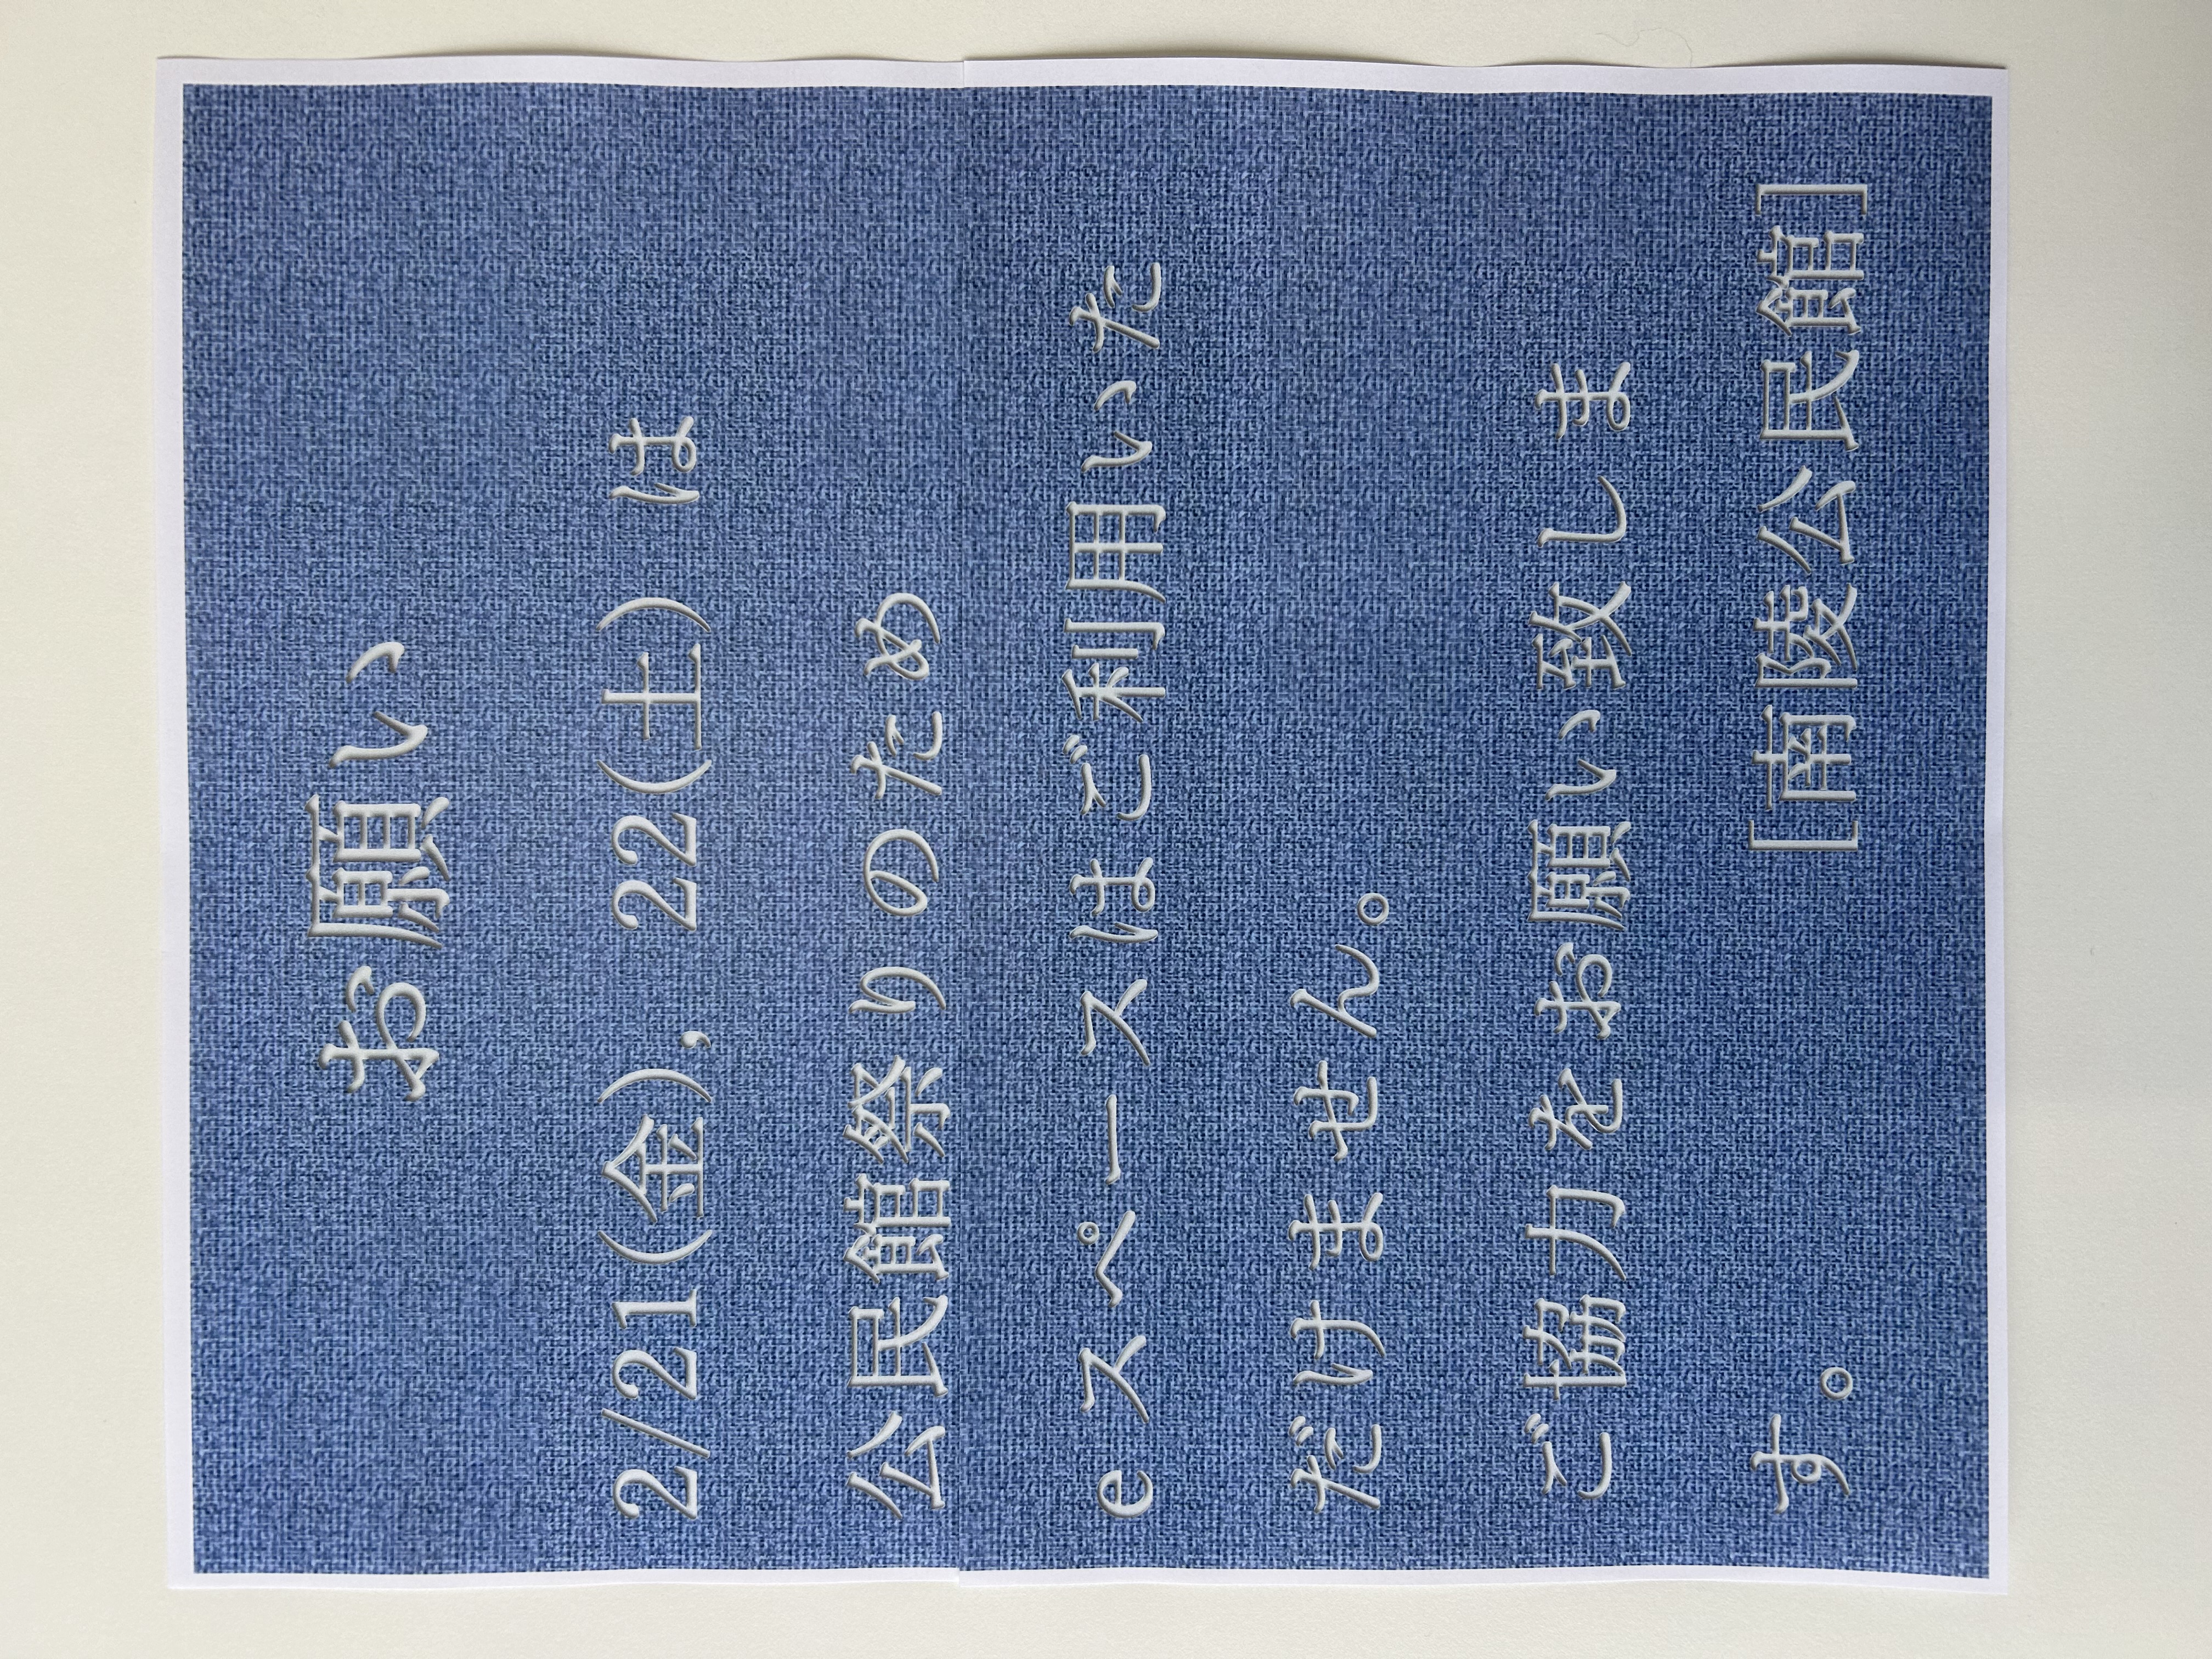 お願い
2/21(金), 22(土) は
公民館祭りのため
eスペースはご利用いた
だけません。
ご協力をお願い致しま
す。 [南陵公民館]